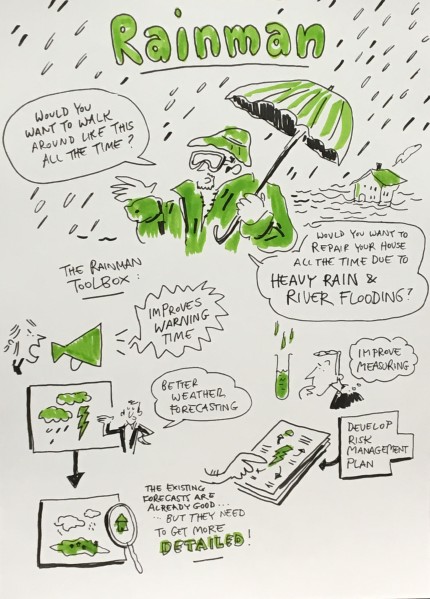 Rainman
WOULD YOU
WANT TO WALK
AROUND LIKE THIS
ALL THE TIME?
WOULD YOU WANT TO
REPAIR YOUR HOUSE
ALL THE TIME DUE TO
HEAVY RAIN &
RIVER FLOODING?
THE RAINMAN
TOOLBOX:
IMPROVES
WARNING
TIME
IMPROVE
MEASURING
BETTER
WEATHER
FORECASTING
DEVELOP
RISK
MANAGEMENT
PLAN
THE EXISTING
FORECASTS ARE
ALREADY GOOD...
...BUT THEY NEED
TO GET MORE
DETAILED!